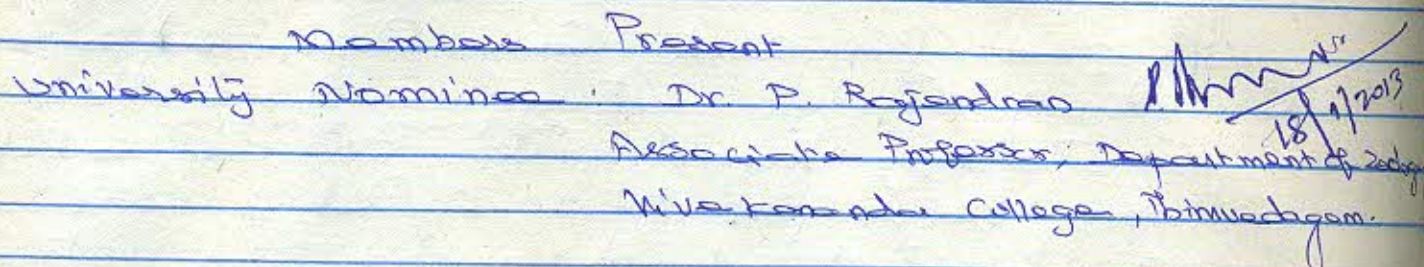 Members Present
University Nominee : Dr. P. Rajendran
18/1/2013
Associate Professor, Department of Zoology
Vivekananda College,